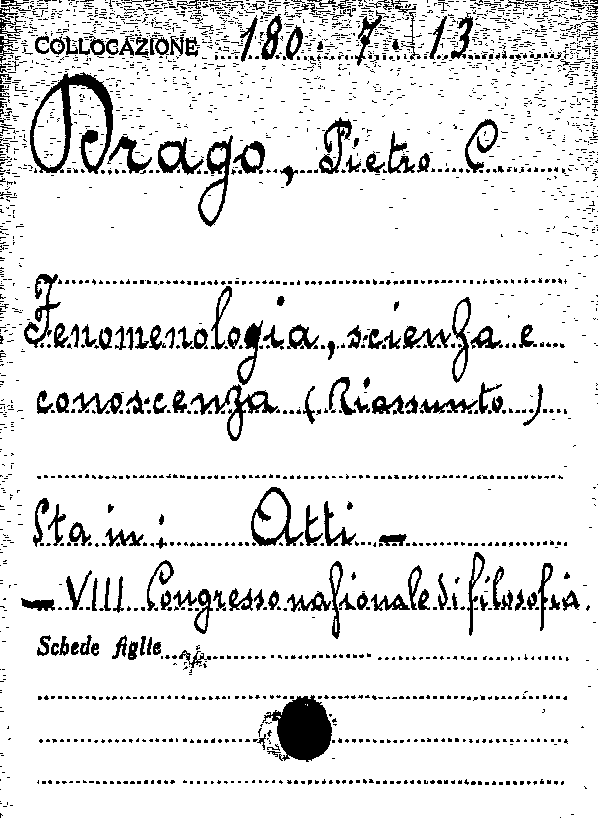 COLLOCAZIONE 180. 7. 13
Drago, Pietro C.
Fenomenologia, scienza e
conoscenza (Riassunto)
Sta in: Atti —
— VIII Congresso nazionale di filosofia.
Schede figlie